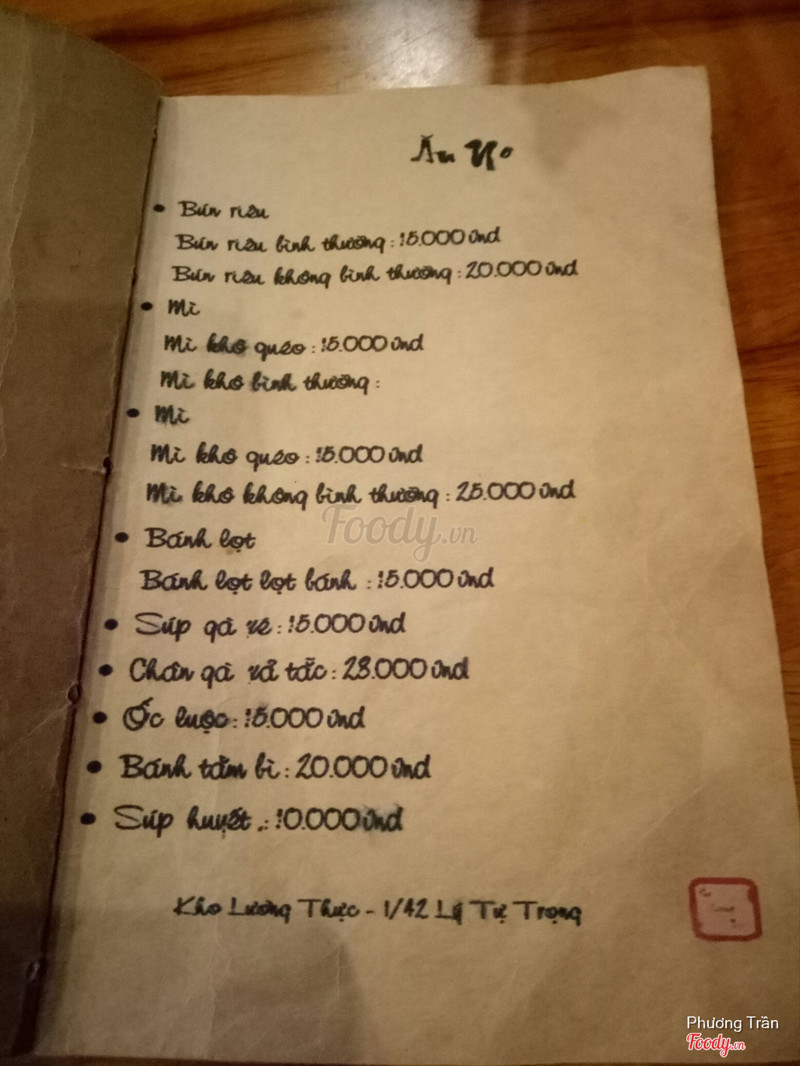 Ăn No
• Bún riêu
Bún riêu bình thường : 15.000 vnd
Bún riêu không bình thường : 20.000 vnd
• Mì
Mì khô quéo : 15.000 vnd
Mì khô bình thường :
• Mì
Mì khô quéo : 15.000 vnd
Mì khô không bình thường : 25.000 vnd
• Bánh lọt
Foody.vn
Bánh lọt lọt bánh : 15.000 vnd
• Súp gà xé : 15.000 vnd
• Chân gà xả tắc : 23.000 vnd
• Ốc luộc : 15.000 vnd
• Bánh tằm bì : 20.000 vnd
• Súp huyết : 10.000 vnd
Kho Lương Thực - 1/42 Lý Tự Trọng
Phương Trần
Foody.vn